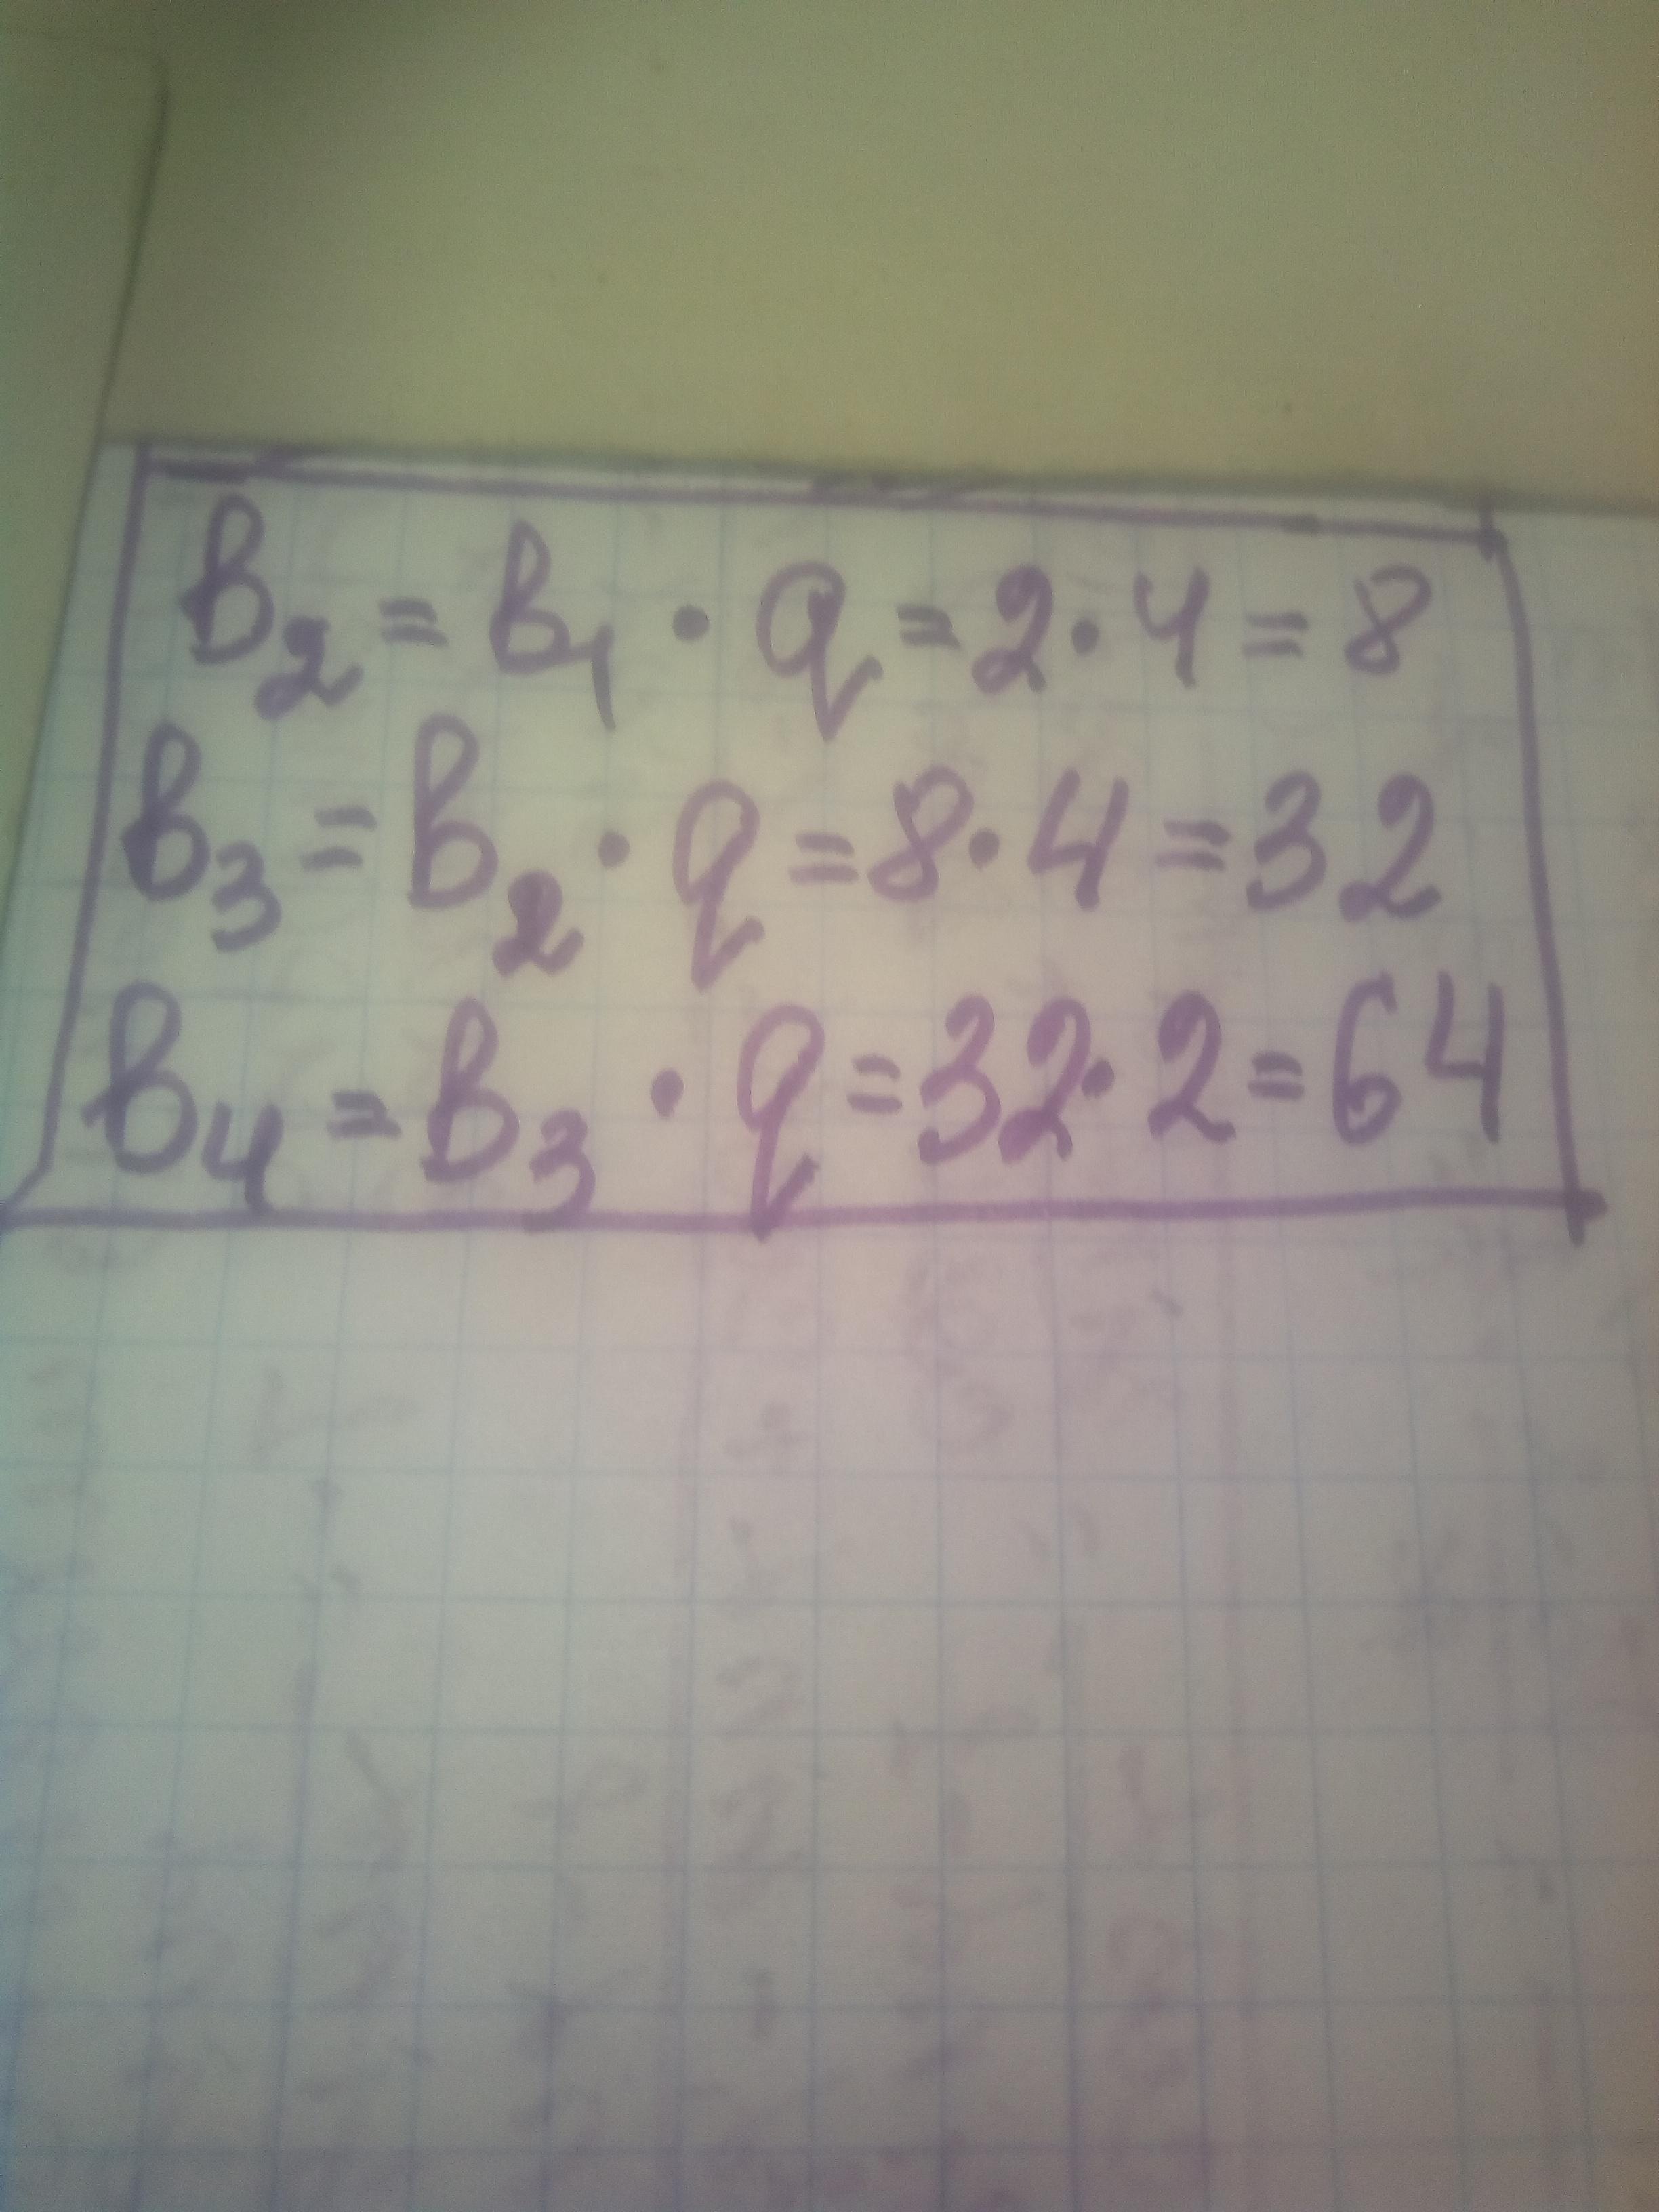 b₂ = b₁ · q = 2 · 4 = 8
b₃ = b₂ · q = 8 · 4 = 32
b₄ = b₃ · q = 32 · 2 = 64